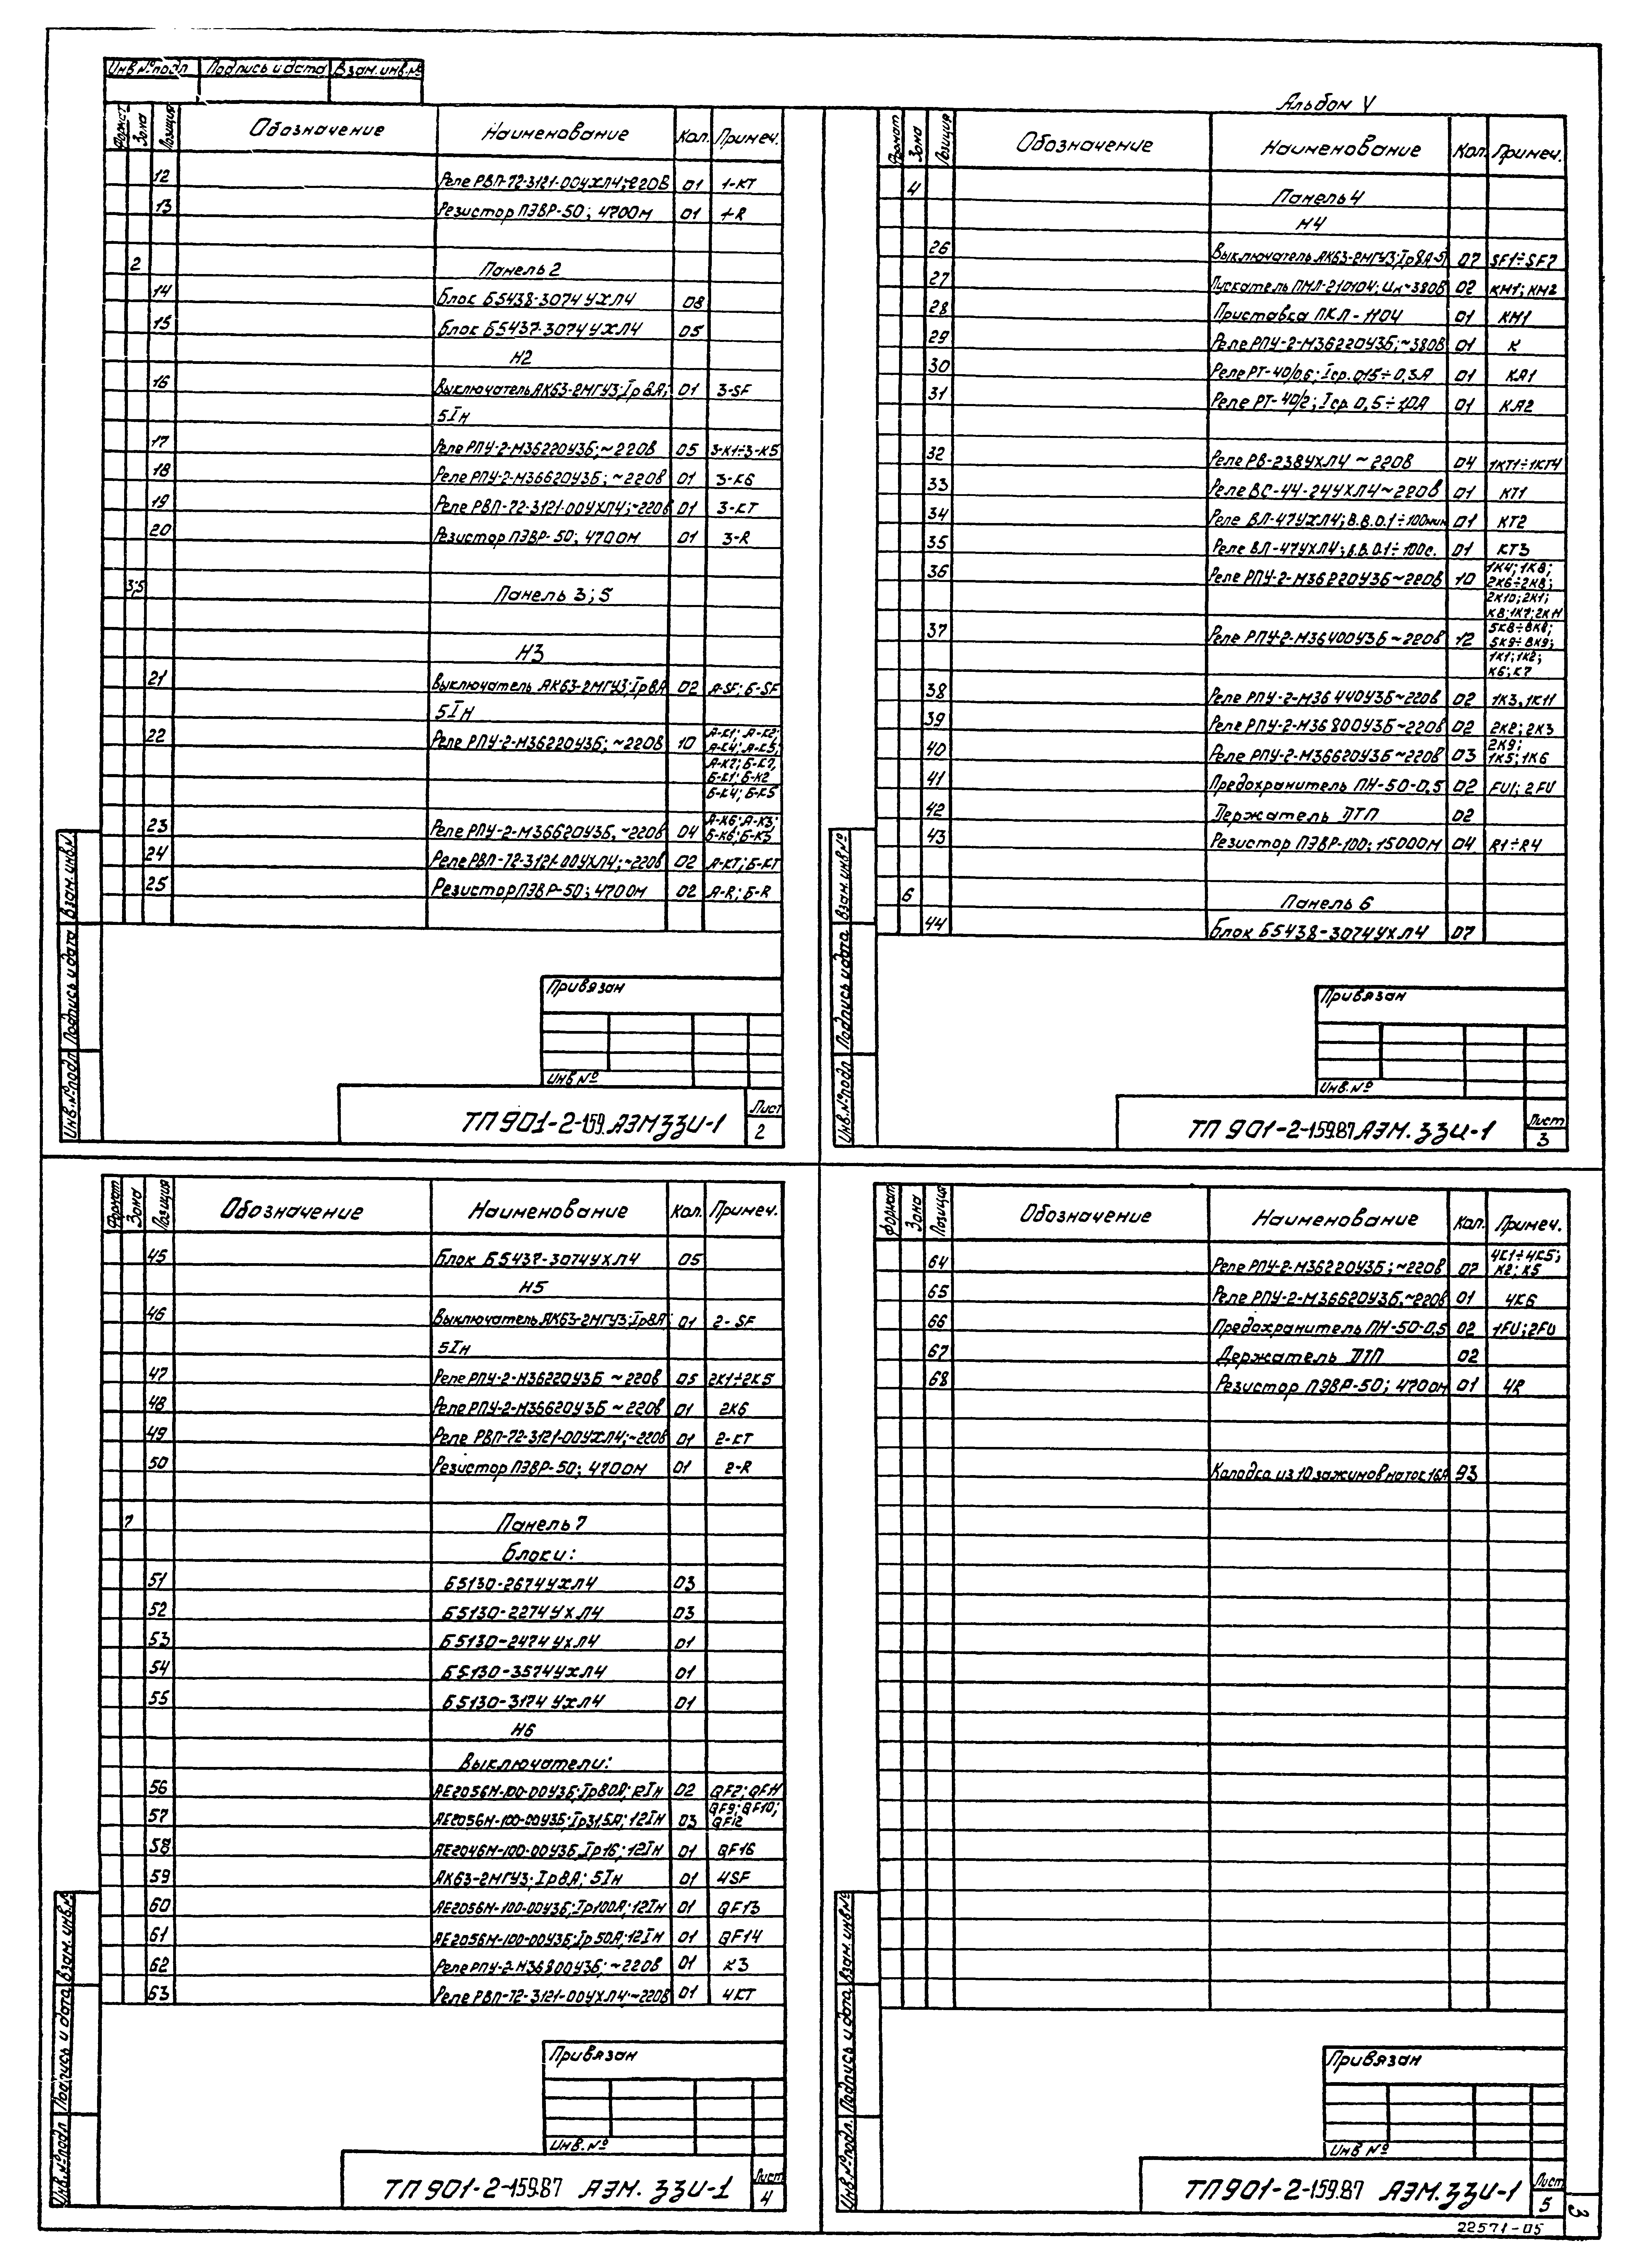 Инв.№подл Подпись и дата Взам.инв.№
Альбом V
Формат Зона Позиция Обозначение Наименование Кол. Примеч.
12 Реле РВП-72-3121-00УХЛ4;~220В 01 1-КТ
13 Резистор ПЭВР-50; 470Ом 01 1-R
2 Панель 2
14 Блок Б5438-3074УХЛ4 08
15 Блок Б5437-3074УХЛ4 05
Н2
16 Выключатель АК63-2МГУ3;Iр8А; 01 3-SF
5Iн
17 Реле РПУ-2-М36220У3Б;~220В 05 3-К1÷3-К5
18 Реле РПУ-2-М36620У3Б;~220В 01 3-К6
19 Реле РВП-72-3121-00УХЛ4;~220В 01 3-КТ
20 Резистор ПЭВР-50; 470Ом 01 3-R
3;5 Панель 3;5
Н3
21 Выключатель АК63-2МГУ3;Iр8А 02 А-SF; Б-SF
5Iн
22 Реле РПУ-2-М36220У3Б;~220В 10 А-К1; А-К2;
А-К4; А-К5;
А-К7; Б-К7;
Б-К1; Б-К2
Б-К4; Б-К5
23 Реле РПУ-2-М36620У3Б,~220В 04 А-К6; А-К3;
Б-К6; Б-К3
24 Реле РВП-72-3121-00УХЛ4;~220В 02 А-КТ; Б-КТ
25 Резистор ПЭВР-50; 470Ом 02 А-R; Б-R
Привязан
Инв №
ТП 901-2-159.АЭМ.ЗЗИ-1 Лист 2
Инв.№подл Подпись и дата Взам.инв.№
Формат Зона Позиция Обозначение Наименование Кол. Примеч.
4 Панель 4
Н4
26 Выключатель АК63-2МГУ3;Iр8А-5I 07 SF1÷SF7
27 Пускатель ПМЛ-210104; Uк~380В 02 КМ1; КМ2
28 Приставка ПКЛ-1104 01 КМ1
29 Реле РПУ-2-М36220У3Б;~380В 01 К
30 Реле РТ-40/0,6; Iср.0,15÷0,3А 01 КА1
31 Реле РТ-40/2; Iср 0,5÷1,0А 01 КА2
32 Реле РВ-238УХЛ4 ~220В 04 1КТ1÷1КТ4
33 Реле ВС-44-24УХЛ4~220В 01 КТ1
34 Реле ВЛ-47УХЛ4; В.В.0.1÷100мин 01 КТ2
35 Реле ВЛ-47УХЛ4; В.В.0.1÷100с. 01 КТ3
36 Реле РПУ-2-М36220У3Б~220В 10 1К4; 1К8;
2К6÷2К8;
2К10; 2К1;
К8; 1К7; 2К11
37 Реле РПУ-2-М36400У3Б~220В 12 5К8÷8К8;
5К9÷8К9;
1К1; 1К2;
К6; К7
38 Реле РПУ-2-М36440У3Б~220В 02 1К3, 1К11
39 Реле РПУ-2-М36800У3Б~220В 02 2К2; 2К3
40 Реле РПУ-2-М36620У3Б~220В 03 2К9;
1К5; 1К6
41 Предохранитель ПН-50-0,5 02 FU1; 2FU
42 Держатель ДТП 02
43 Резистор ПЭВР-100; 1500Ом 04 R1÷R4
6 Панель 6
44 Блок Б5438-3074УХЛ4 07
Привязан
Инв.№
ТП 901-2-159.87 АЭМ.ЗЗИ-1 Лист 3
Инв.№подл Подпись и дата Взам.инв.№
Формат Зона Позиция Обозначение Наименование Кол. Примеч.
45 Блок Б5437-3074УХЛ4 05
Н5
46 Выключатель АК63-2МГУ3;Iр8А 01 2-SF
5Iн
47 Реле РПУ-2-М36220У3Б ~220В 05 2К1÷2К5
48 Реле РПУ-2-М36620У3Б ~220В 01 2К6
49 Реле РВП-72-3121-00УХЛ4;~220В 01 2-КТ
50 Резистор ПЭВР-50; 470Ом 01 2-R
7 Панель 7
Блоки:
51 Б5130-2674УХЛ4 03
52 Б5130-2274УХЛ4 03
53 Б5130-2474УХЛ4 01
54 Б5130-3574УХЛ4 01
55 Б5130-3174УХЛ4 01
Н6
Выключатели:
56 АЕ2056М-100-00У3Б;Iр80А; 12Iн 02 QF2; QF11
57 АЕ2056М-100-00У3Б;Iр31,5А; 12Iн 03 QF9; QF10;
QF12
58 АЕ2046М-100-00У3Б,Iр16; 12Iн 01 QF16
59 АК63-2МГУ3; Iр8А; 5Iн 01 4SF
60 АЕ2056М-100-00У3Б;Iр100А; 12Iн 01 QF13
61 АЕ2056М-100-00У3Б;Iр50А; 12Iн 01 QF14
62 Реле РПУ-2-М36800У3Б;~220В 01 К3
63 Реле РВП-72-3121-00УХЛ4;~220В 01 4КТ
Привязан
Инв.№
ТП 901-2-159.87 АЭМ.ЗЗИ-1 Лист 4
Инв.№подл Подпись и дата Взам.инв.№
Формат Зона Позиция Обозначение Наименование Кол. Примеч.
64 Реле РПУ-2-М36220У3Б;~220В 07 4К1÷4К5;
К2; К5
65 Реле РПУ-2-М36620У3Б,~220В 01 4К6
66 Предохранитель ПН-50-0,5 02 1FU; 2FU
67 Держатель ДТП 02
68 Резистор ПЭВР-50; 470Ом 01 4R
Колодка из 10 зажимов на ток 16А 93
Привязан
Инв №
ТП 901-2-159.87 АЭМ.ЗЗИ-1 Лист 5
Инв.№подл. Подпись и дата Взам.инв№
3
22571-05